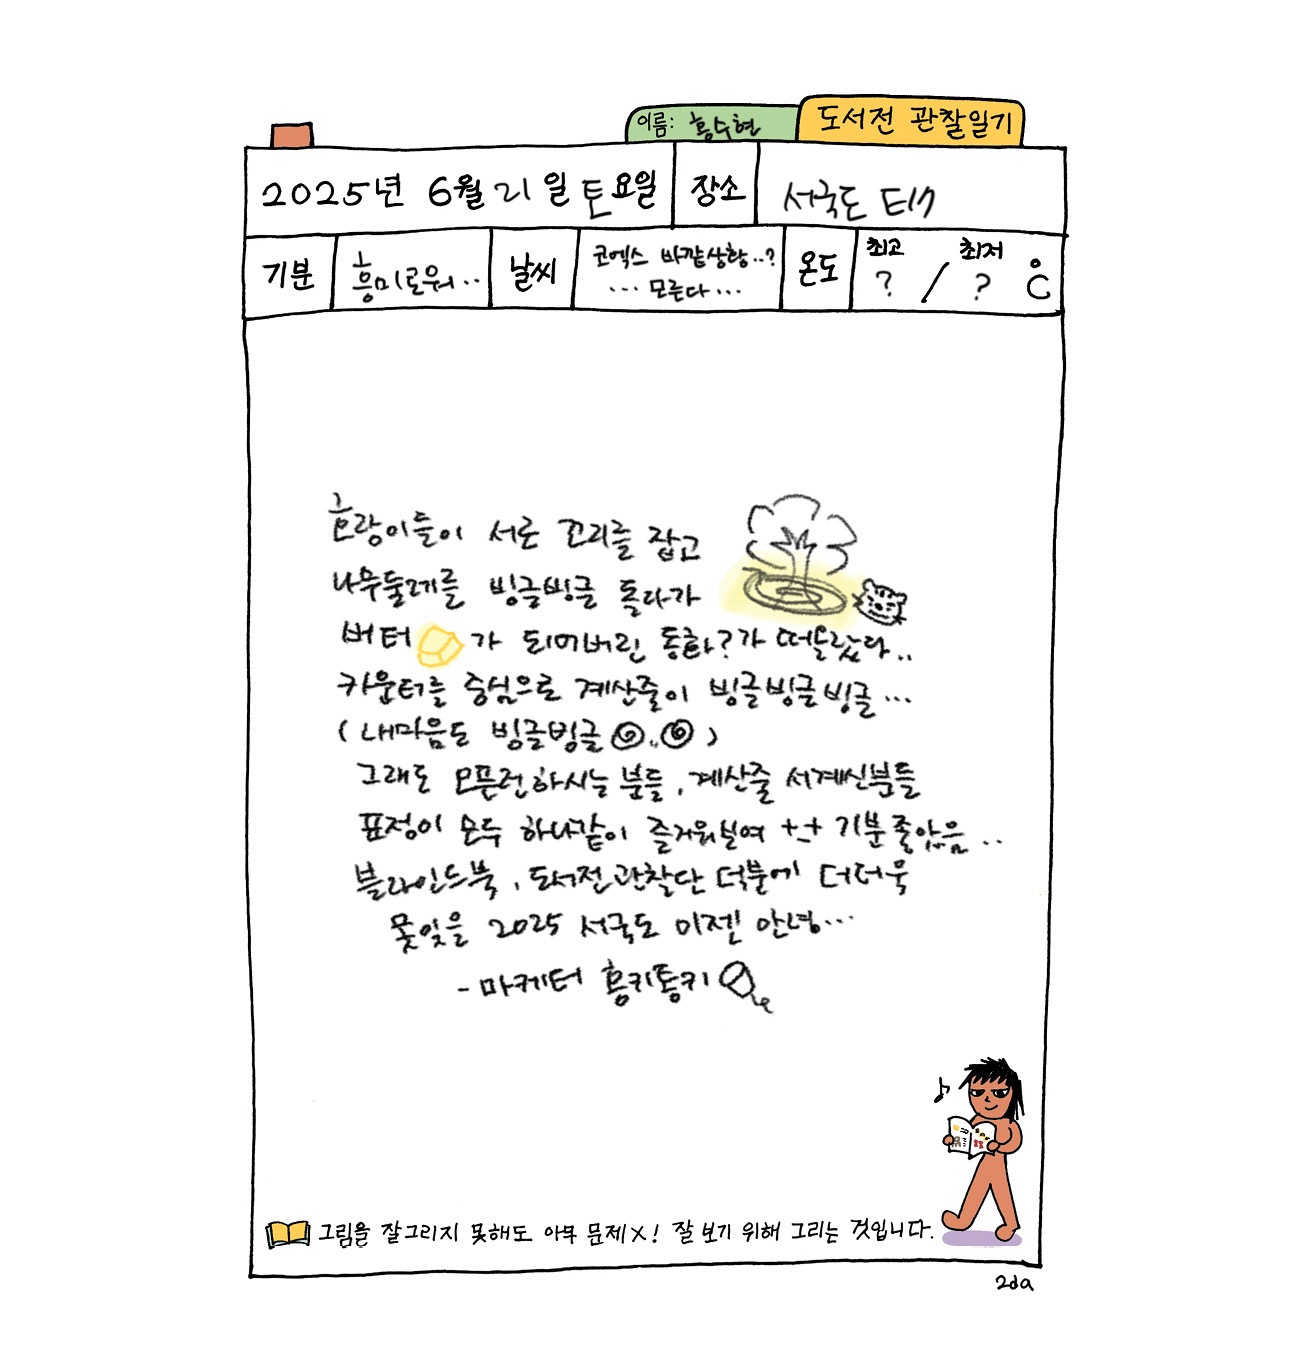 도서전 관찰일기
이름: 홍수현
2025년 6월 21일 토요일 장소 서국도
기분 흥미로워.. 날씨 코엑스 바깥상황..? ...모른다... 온도 최고 ? / 최저 ? ℃
호랑이들이 서로 꼬리를 잡고
나무둘레를 빙글빙글 돌다가
버터 가 되어버린 동화?가 떠올랐다..
카운터를 중심으로 계산줄이 빙글빙글빙글...
(내마음도 빙글빙글 )
그래도 오픈런하시는 분들, 계산줄 서계신분들
표정이 모두 하나같이 즐거워보여 +_+ 기분좋았음..
블라인드북, 도서전관찰단 덕분에 더더욱
못잊을 2025 서국도 이젠 안녕...
- 마케터 홍키통키
그림을 잘그리지 못해도 아무 문제X! 잘 보기 위해 그리는 것입니다.
2da